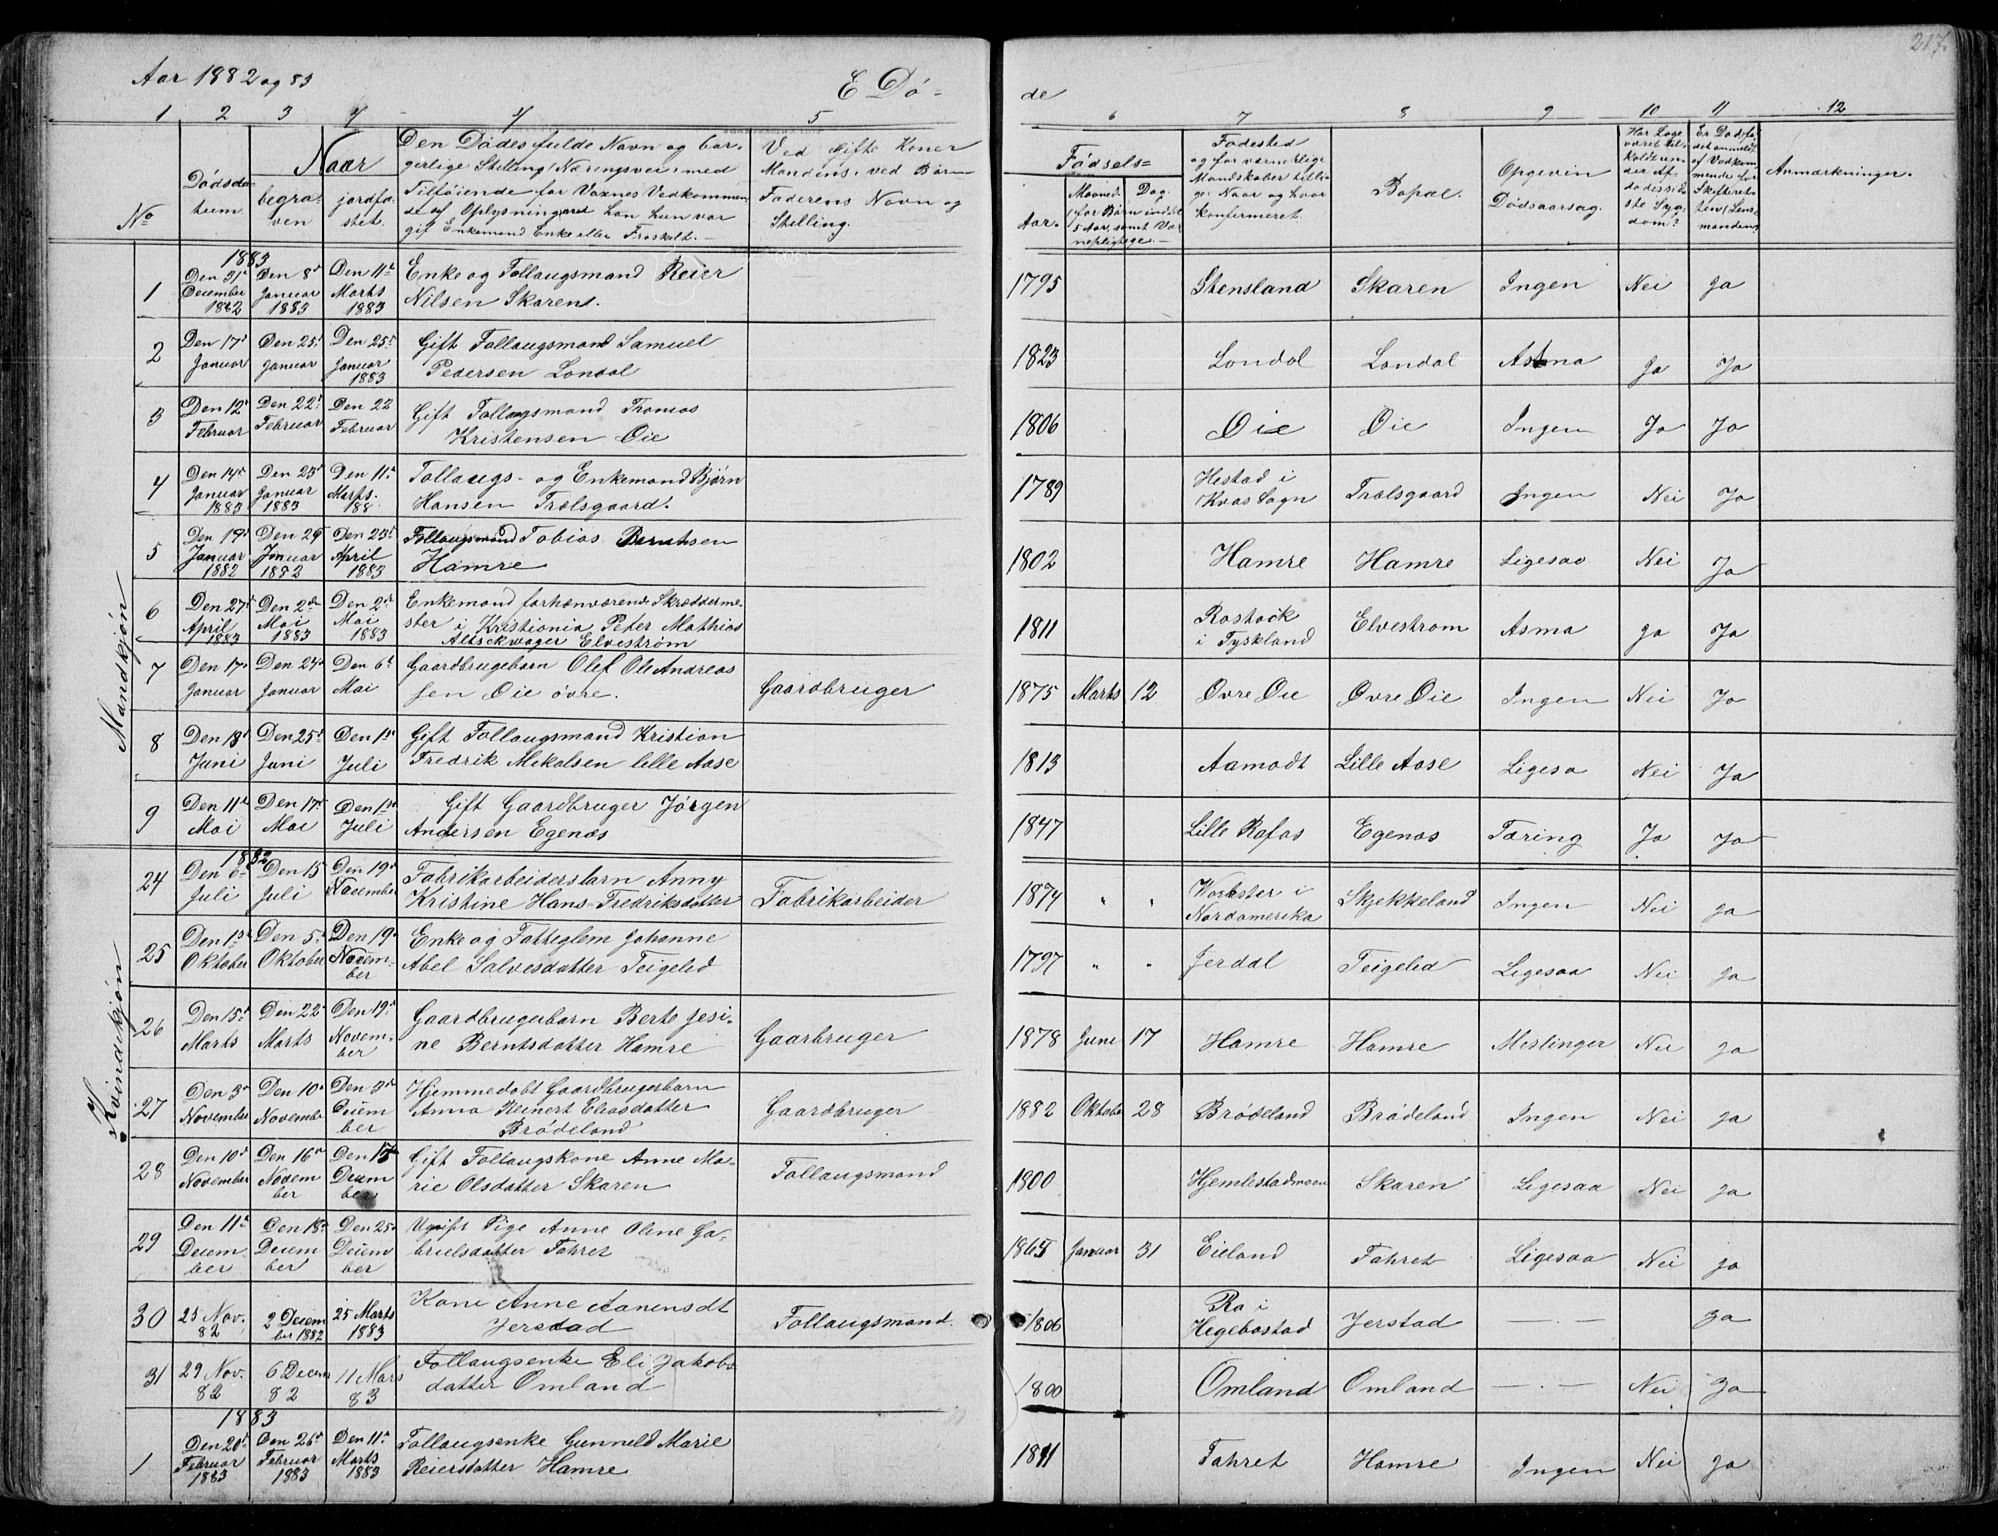 217.
Aar 1882 og 83
E Dö-
de
1 2 3 4 4 5
6 7 8 9 10 11 12
No
Dødsda-
tum.
Naar
begra-
ven
jordfæ-
stet.
Den Dødes fulde Navn og bor-
gerlige Stilling (Næringsvei) med
Tilføiende for Voxnes Vedkommen-
de af Oplysning om han hun var
gift Enkemand Enke eller Fraskilt.
Ved Gifte Koner
Mandens, ved Børn
Faderens Navn og
Stilling.
Fødsels=
Aar.
Maaned.
Dag.
for Børn indtil
5 Aar, samt Vær-
nepligtige.
Fødested
og for værnepligtige
Mandskaber tillige
Naar og hvor
konfirmeret.
Bopæl.
Opgiven
Dødsaarsag.
Har Læge
været til-
kaldt un-
der Af-
dødes sid-
ste Syg-
dom?
Er Dødsfal-
det anmeldt
af Vedkom-
mende for
Skifteret-
ten / Lens-
manden
Anmærkninger.
Mandkjøn
1883
1 Den 31te December 1882 Den 8de Januar 1883 Den 11te Marts 1883 Enke og Follaugsmand Reier
Nilsen Skaren. 1795 Stensland Skaren Ingen Nei Ja
2 Den 17de Januar Den 25de Januar Den 25de Januar 1883 Gift Follaugsmand Samuel
Pedersen Londal 1823 Londal Londal Astma Ja Ja
3 Den 12te Februar Den 22de Februar Den 22 Februar Gift Follaugsmand Tronias
Kristensen Øie 1806 Øie Øie Ingen Ja Ja
4 Den 14de Januar 1883 Den 23de Januar 1883 Den 11te Marts. 188 Follaugs- og Enkemand Bjørn
Hansen Trælsgaard. 1789 Hestad i Kvas Sogn Trælsgaard Ingen Nei Ja
5 Den 19de Januar 1882 Den 29 Januar 1882 Den 23de April 1883 Follaugsmand Tobias Berntsen
Hamre 1802 Hamre Hamre Ligesaa Nei Ja
6 Den 27de April 1883 Den 2den Mai 1883 Den 2d Mai 1883 Enkemand forhenværende Skræddersme-
ster i Kristiania Peter Mathias
Elvestrøm 1811 Rostock i Tyskland Elvestrøm Asma Ja Ja
7 Den 17de Januar Den 24de Januar Den 6te Mai Gaardbrugebarn Olef Ole Andreas
sen Øie øvre. Gaardbruger 1875 Marts 12 Øvre Øie Øvre Øie Ingen Nei Ja
8 Den 18de Juni Den 25de Juni Den 1ste Juli Gift Follaugsmand Kristian
Fredrik Mikalsen lille Aase 1813 Aamodt Lille Aase Ligesa Nei Ja
9 Den 11te Mai Den 17de Mai Den 1ste Juli Gift Gaardbruger Jørgen
Andersen Egenæs 1847 Lille Rafos Egenæs Tæring Ja Ja
Kvindekjøn
1882
24 Den 6te Juli Den 15 Juli Den 19de November Fabrikarbeidersbarn Anny
Kristine Hans-Fredriksdatter Fabrikarbeider 1874 " " Worbster i Nordamerika Skjekkeland Ingen Nei Ja
25 Den 1ste Oktober Den 5te Oktober Den 19de November Enke og Fattiglem Johanne
Abel Salvesdatter Teigelid 1797 " " Jerdal Teigelid Ligesaa Nei Ja
26 Den 15de Marts Den 22 Marts Den 19de November Gaardbrugerbarn Berte Jesi-
ne Berntsdatter Hamre Gaarbruger 1878 June 17 Hamre Hamre Meslinger Nei Ja
27 Den 3die November Den 10de November Den 3die December Hjemmedøbt Gaardbrugerbarn
Anna Reinert Eliasdatter
Brødeland Gaardbruger 1882 Oktober 28 Brødeland Brødeland Ingen Nei Ja
28 Den 10de November Den 16de November Den 15 December Gift Follaugskone Anne Ma-
rie Olsdatter Skaren Follaugsmand 1800 Hjemlestadmoen Skaren Ligesaa Nei Ja
29 Den 11te December Den 18de December Den 25de December Ugift Pige Anne Oline Ga-
brielsdatter Fahret 1865 Januar 31 Eieland Fahret Ligesaa Nei Ja
30 25 Nov. 82 2 December 1882 25 Marts 1883 Kone Anne Aanensdt
Jerstad Follaugsmand. 1806 Ra i Hegebostad Jerstad — . — Ja
31 29 Nov. 82 6 Decem 82 11 Mars 83 Follaugsenke Eli Jakobs
datter Omland 1800 Omland Omland — . — Nei Ja
1883
1 Den 20de Februar 1883 Den 26de Februar 1883 Den 11te Marts 1883 Follaugsenke Gunneld Marie
Reiersdatter Hamre 1811 Fahret Hamre Ingen Nei Ja